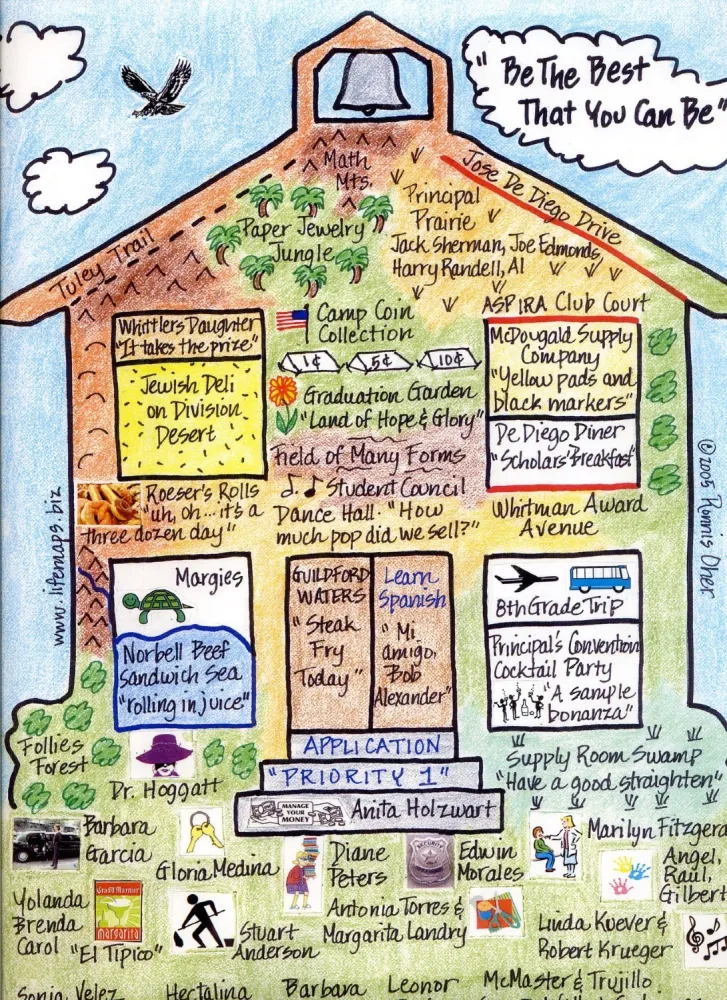 "Be The Best
That You Can Be"
Math
Mts.
Jose De Diego Drive
Tuley Trail
Paper Jewelry
Jungle
Principal
Prairie
Jack Sherman, Joe Edmonds,
Harry Randell, Al
ASPIRA Club Court
Whittlers Daughter
"It takes the prize"
Jewish Deli
on Division
Desert
Camp Coin
Collection
1¢ 5¢ 10¢
Graduation Garden
"Land of Hope & Glory"
McDougald Supply
Company
"Yellow pads and
black markers"
De Diego Diner
"Scholars' Breakfast"
Field of Many Forms
Student Council
Dance Hall. "How
much pop did we sell?"
Roeser's Rolls
"uh, oh... it's a
three dozen day"
Whitman Award
Avenue
www.lifemaps.biz
Margies
Norbell Beef
Sandwich Sea
"rolling in juice"
GUILDFORD
WATERS
"Steak
Fry
Today"
Learn
Spanish
"Mi
amigo,
Bob
Alexander"
8th Grade Trip
Principal's Convention
Cocktail Party
"A sample
bonanza"
APPLICATION
"PRIORITY 1"
MANAGE
YOUR
MONEY
Anita Holzwart
Follies
Forest
Dr. Hoggatt
Supply Room Swamp
"Have a good straighten"
Barbara
Garcia
Gloria Medina
Diane
Peters
SECURITY
Edwin
Morales
Marilyn Fitzgera
Angel,
Raul,
Gilbert
Yolanda
Brenda
Carol
Grand Marnier
margarita
"El Tipico"
Stuart
Anderson
Antonia Torres &
Margarita Landry
Linda Kuever &
Robert Krueger
Sonia Velez
Hectalina
Barbara
Leonor
McMaster & Trujillo